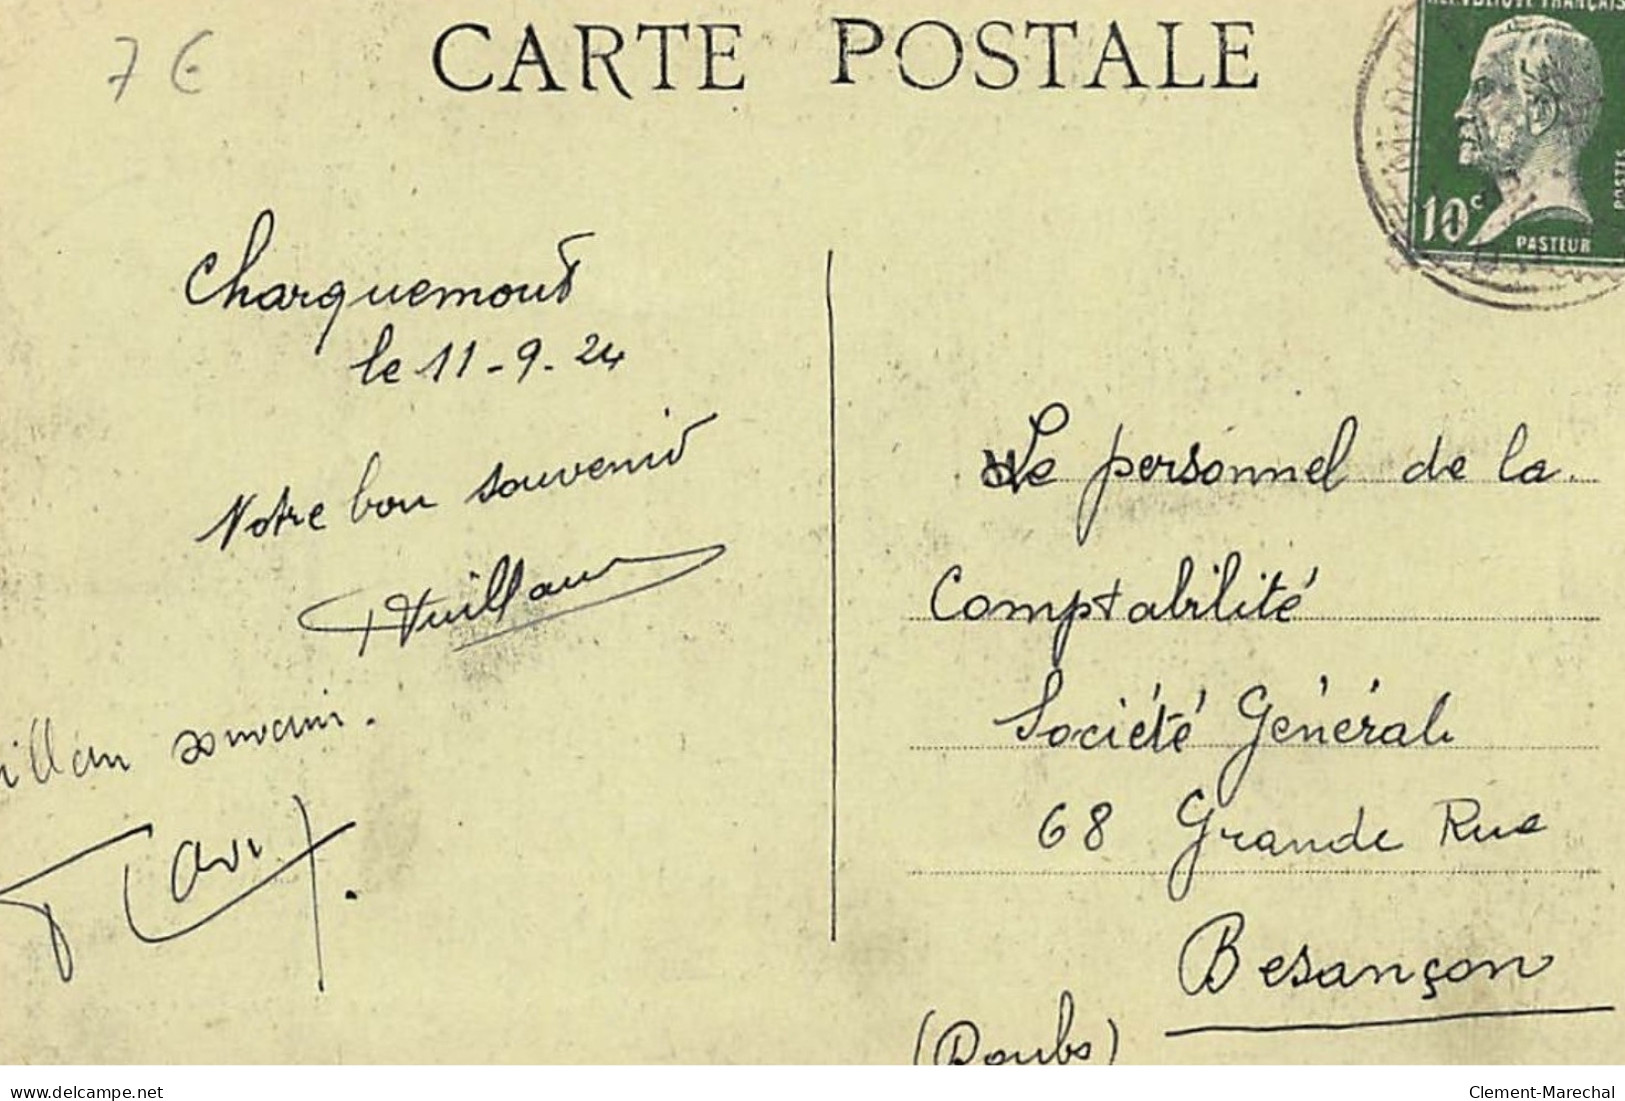 7 €
CARTE POSTALE
RÉPUBLIQUE FRANÇAISE
10c
POSTES
PASTEUR
Charquemont
le 11-9-24
Votre bon souvenir
Le personnel de la
Comptabilité
Société Générale
68 Grande Rue
Besançon
(Doubs)
souvenir.
delcampe.net
Clement-Marechal